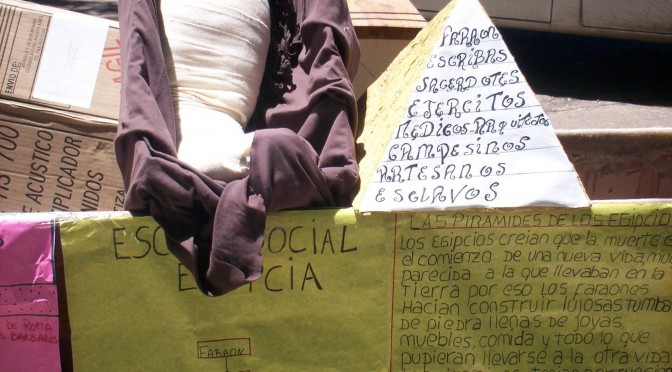 FARAON
ESCRIBAS
SACERDOTES
EJERCITOS
MEDICOS-ARQUITECTOS
CAMPESINOS
ARTESANOS
ESCLAVOS
ENVIO DE:
AGIL
700
ACUSTICO
PLIFICADOR
NIDOS
DE ROMA
BARBAROS
ESC OCIAL
E CIA
FARAON
LAS PIRAMIDES DE LOS EGIPCIOS
LOS EGIPCIOS CREIAN QUE LA MUERTE E
EL COMIENZO DE UNA NUEVA VIDA, MUY
PARECIDA A LA QUE LLEVABAN EN LA
TIERRA POR ESO LOS FARAONES
HACIAN CONSTRUIR LUJOSAS TUMB
DE PIEDRA LLENAS DE JOYAS,
MUEBLES, COMIDA Y TODO LO QUE
PUPIERAN LLEVARSE A LA OTRA VIDA